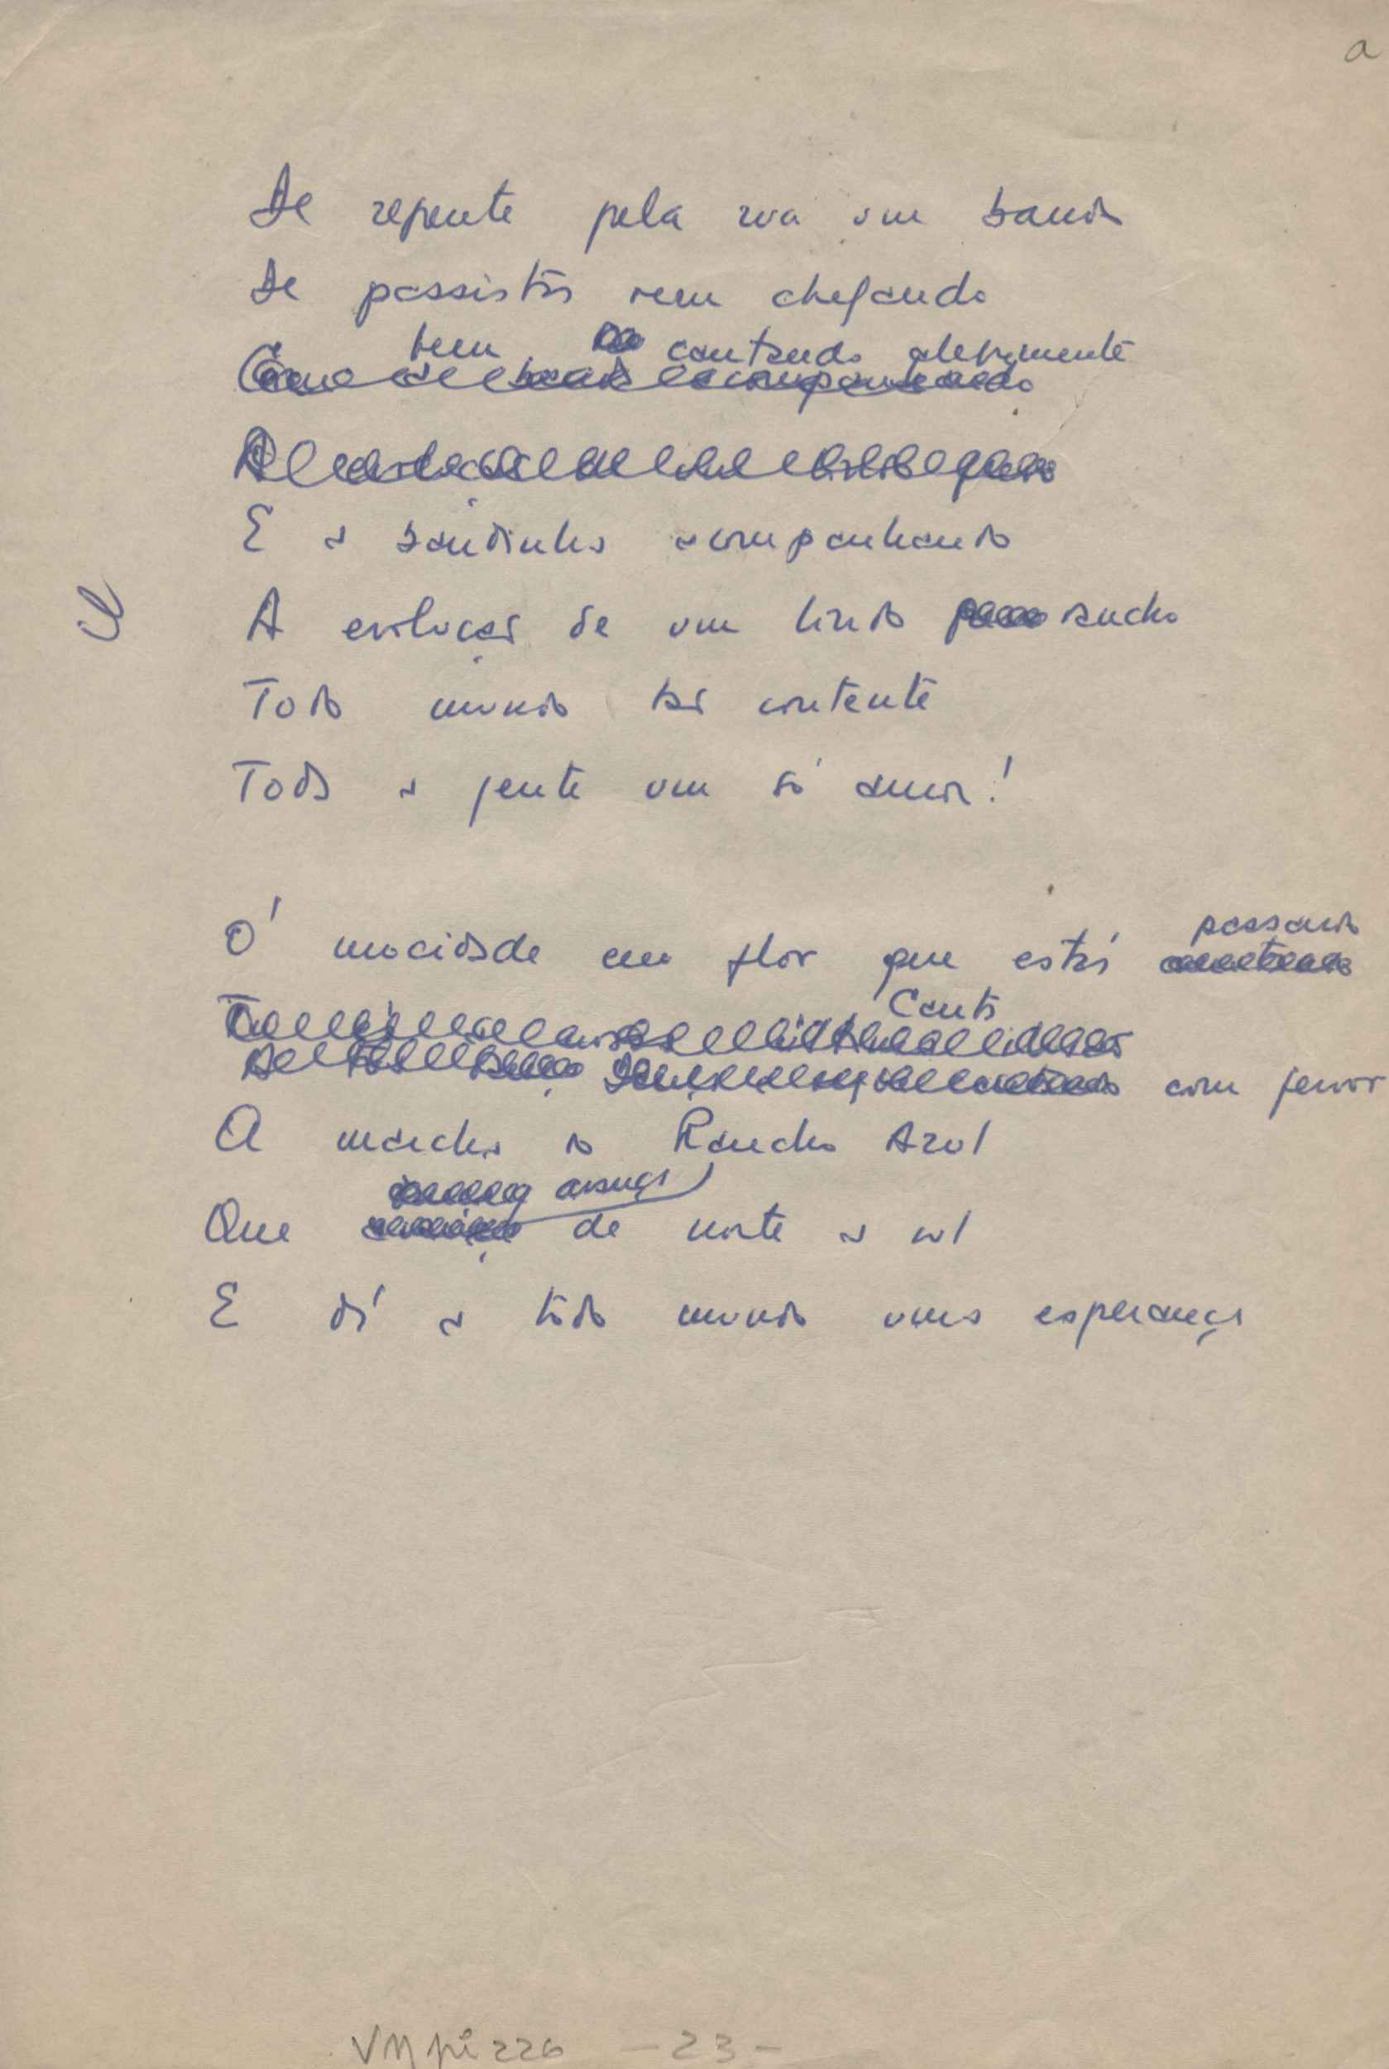 a
De repente pela rua um bando
De passistas vem chegando
bem cantando alegremente
E a bandinha acompanhando
A evolução de um lindo rancho
Todo mundo tão contente
Toda a gente um só amor!
Ó mocidade em flor que está passando
Canta
com fervor
A marcha do Rancho Azul
Que avança de norte a sul
E dá a todo mundo uma esperança
VMpi226 -23-